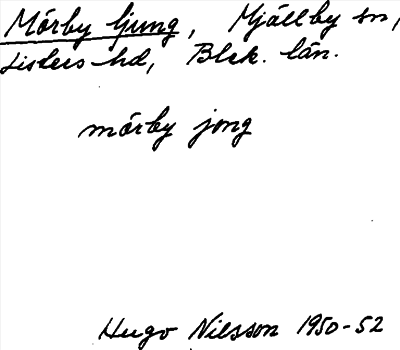 Mörby ljung, Mjällby sn,
Listers hd, Blek. län.
mörby jong
Hugo Nilsson 1950-52